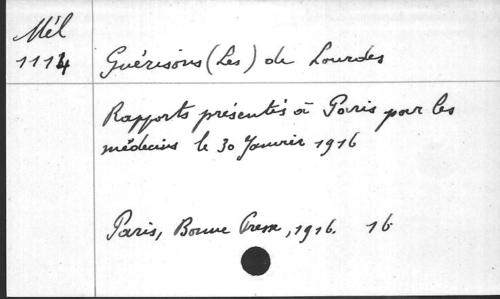 Mél
1114
Guérisons (Les) de Lourdes
Rapports présentés à Paris par les
médecins le 30 Janvier 1916
Paris, Bonne Presse, 1916. 16